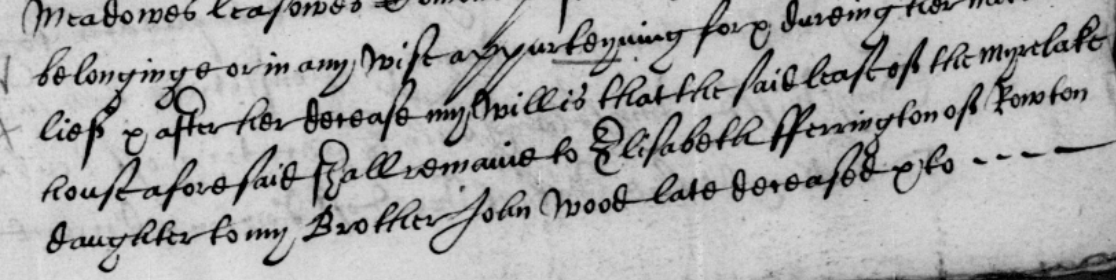 Meadowes leasowes
belonginge or in any wise appurteyning for & dureing her
lief & after her decease my will is that the said lease of the Myrelake
house aforesaid shall remaine to Elisabeth fferrington of Rowton
daughter to my Brother John Wood late deceased & to - - - -